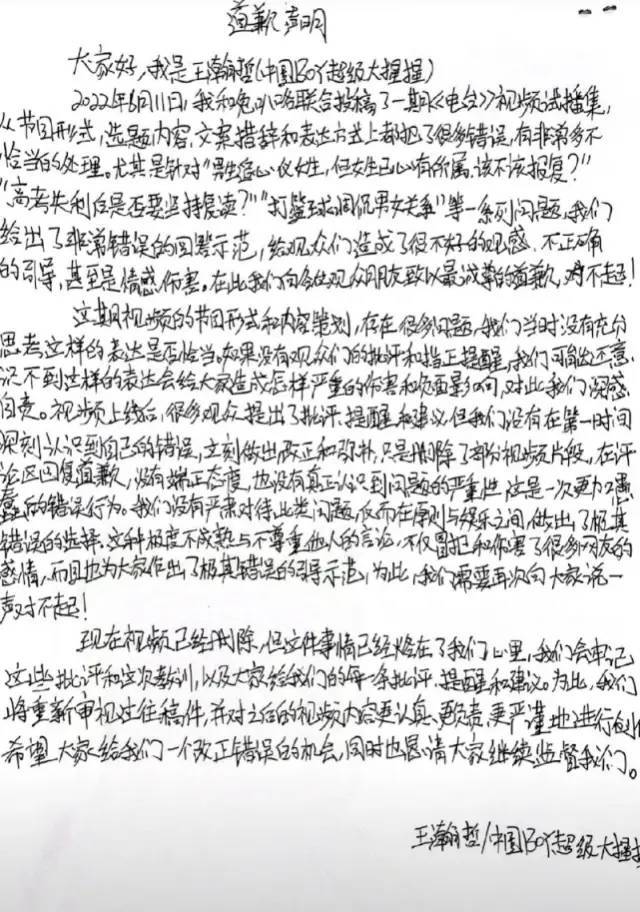 道歉声明
大家好,我是王瀚哲(中国BOY超级大猩猩)
2022年6月11日,我和兔叭咯联合投稿了一期《电台》视频试播集,
从节目形式,选题内容,文案措辞和表达方式上都犯了很多错误,有非常多不
恰当的处理。尤其是针对“男生倾心仪女生,但女生已心有所属,该不该报复?”
“高考失利后是否要坚持复读?”“打篮球调侃男女关系”等一系列问题,我们
给出了非常错误的回答示范,给观众们造成了很不好的观感、不正确
的引导,甚至是情感伤害。在此我们向各位观众朋友致以最诚挚的道歉,对不起!
这期视频的节目形式和内容策划,存在很多问题,我们当时没有充分
思考这样的表达是否恰当。如果没有观众们的批评和指正提醒,我们可能还意
识不到这样的表达会给大家造成怎样严重的伤害和负面影响,对此我们深感
自责。视频上线后,很多观众提出了批评、提醒和建议,但我们没有在第一时间
深刻认识到自己的错误,立刻做出改正和弥补,只是删除了部分视频片段,在评
论区回复道歉,没有端正态度,也没有真正认识到问题的严重性,这是一次更加愚
蠢的错误行为。我们没有严肃对待此类问题,反而在原则与娱乐之间,做出了极其
错误的选择。这种极度不成熟与不尊重他人的言论,不仅冒犯和伤害了很多网友的
感情,而且也为大家作出了极其错误的引导示范,为此,我们需要再次向大家说一
声对不起!
现在视频已经删除,但这件事情已经烙在了我们心里,我们会牢记
这些批评和这次教训,以及大家给我们的每一条批评、提醒和建议。为此,我们
将重新审视过往稿件,并对之后的视频内容更认真、更负责、更严谨地进行创作
希望大家给我们一个改正错误的机会,同时也恳请大家继续监督我们。
王瀚哲/中国BOY超级大猩猩